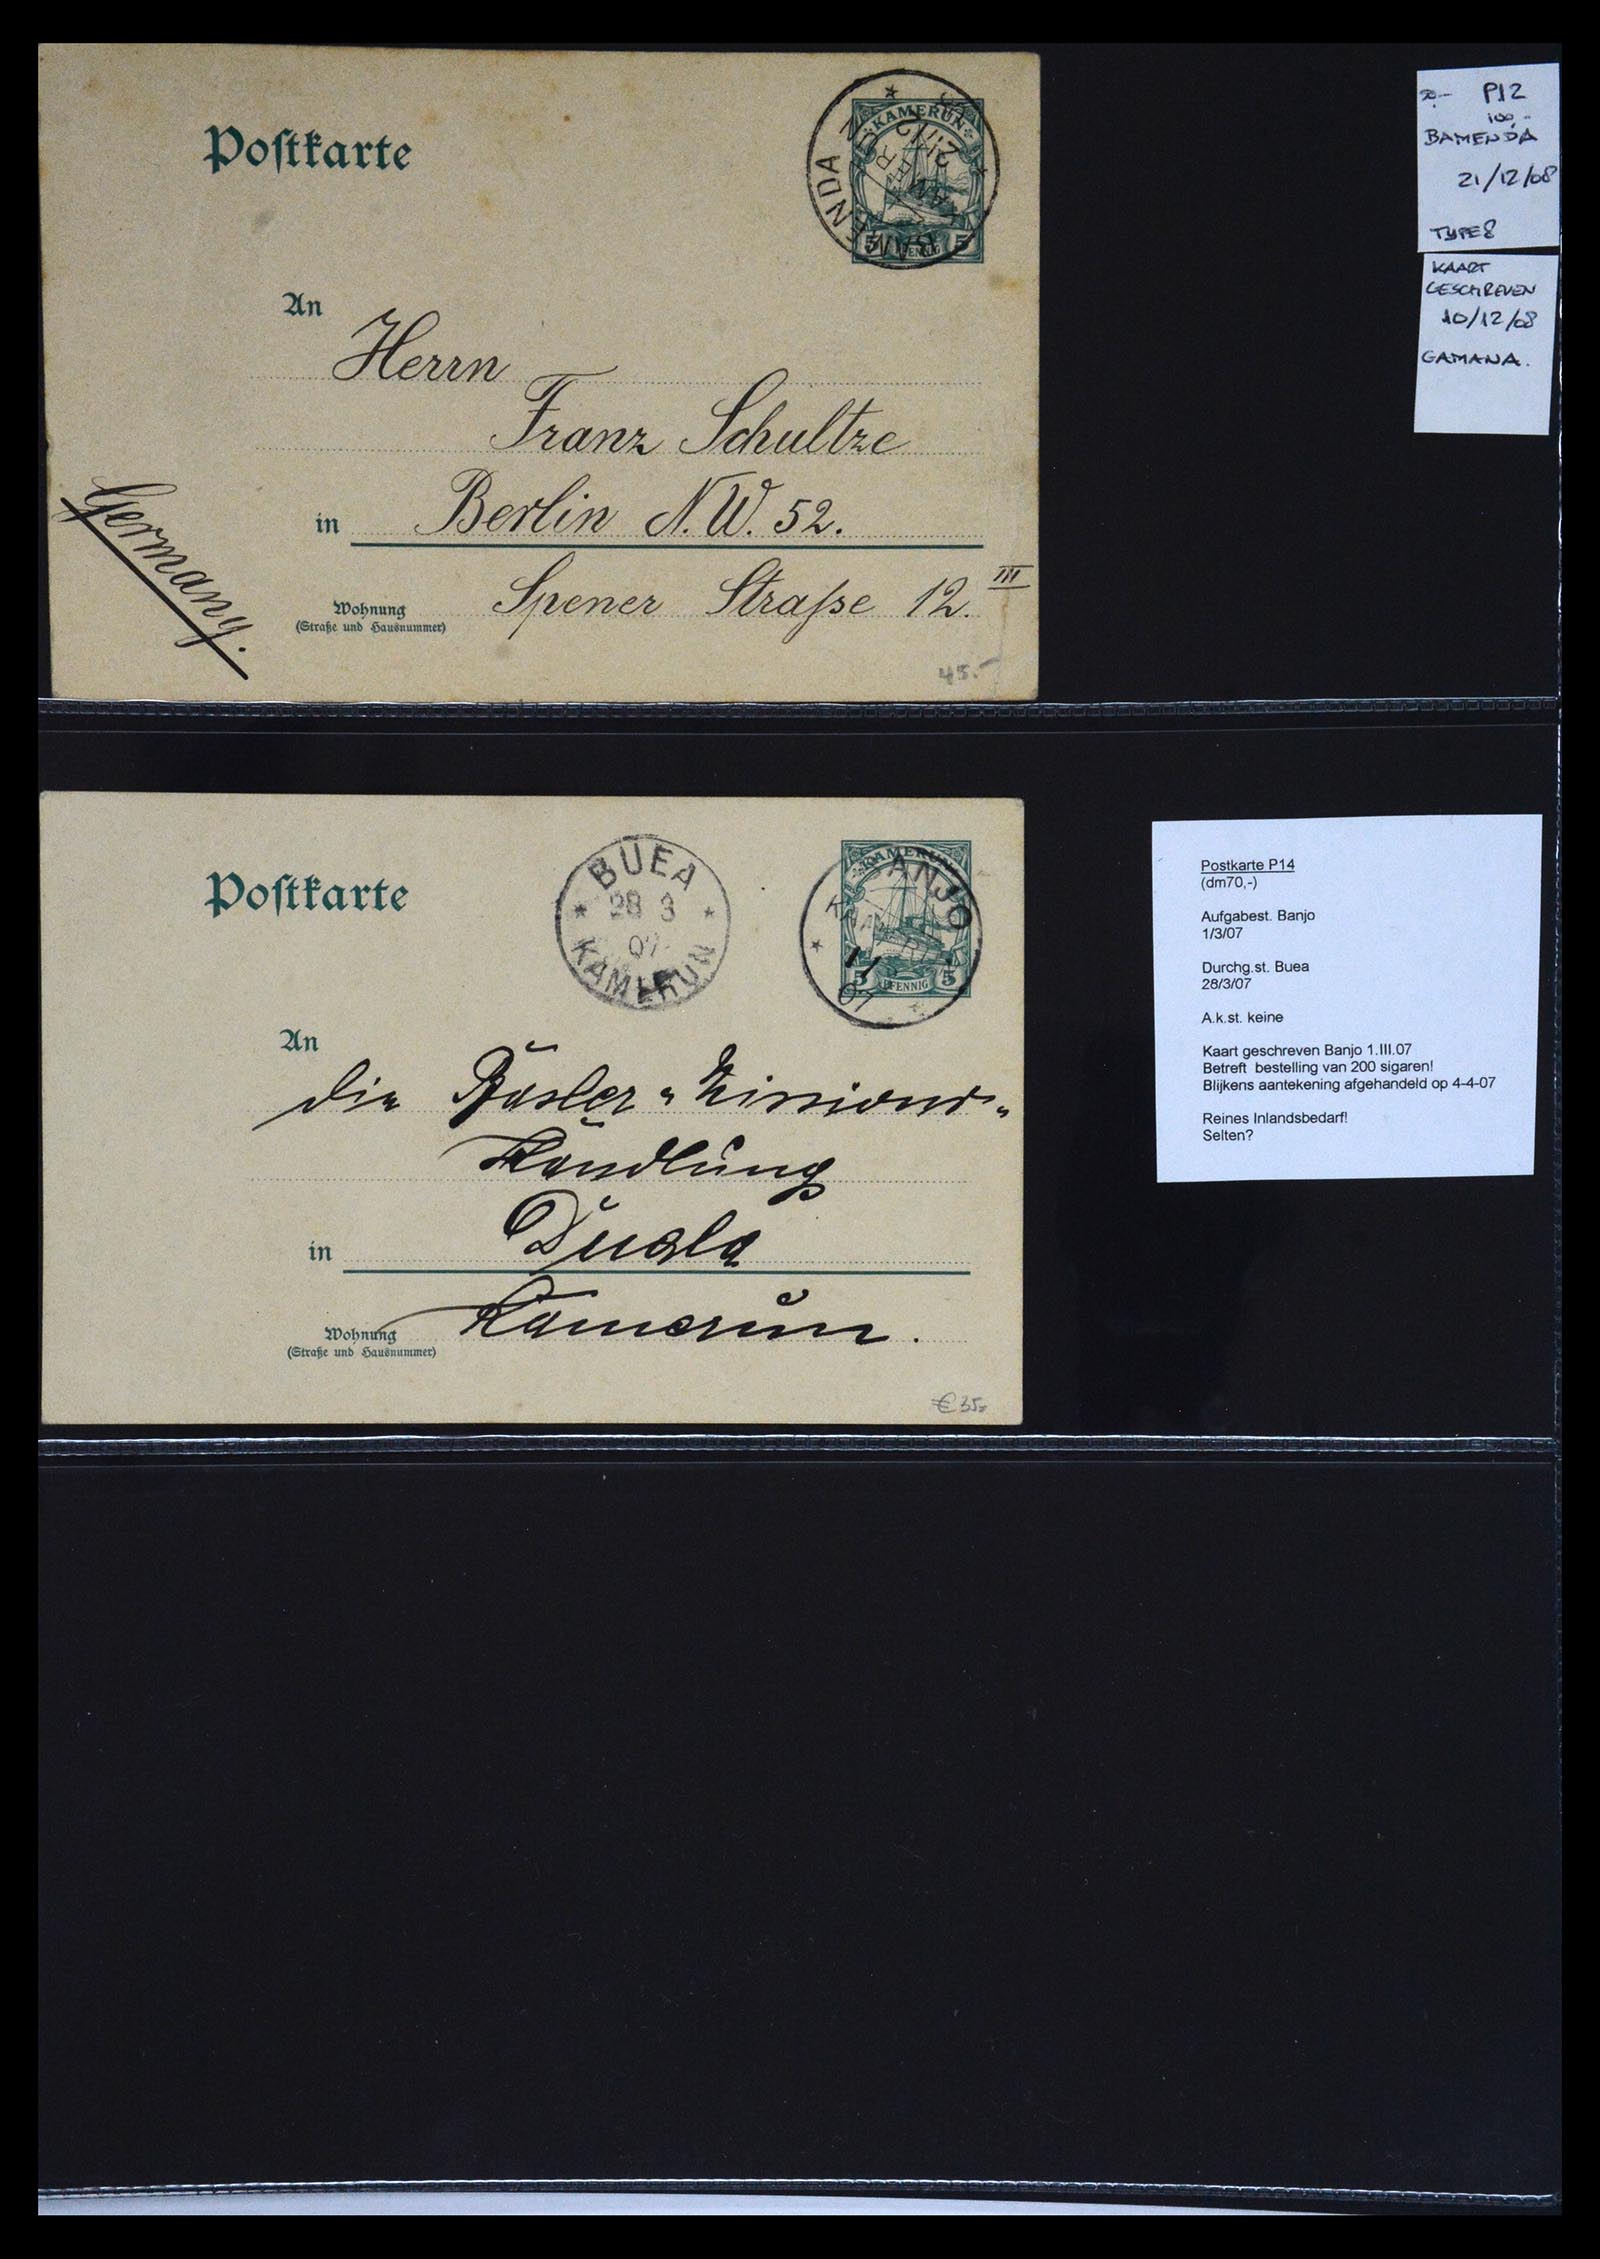 Postkarte
KAMERUN
5 PFENNIG 5
BAMENDA
An
Herrn
Franz Schultze
in Berlin N.W. 52.
Wohnung
(Straße und Hausnummer)
Spener Straße 12. III
Germany.
45.-
P12
100,-
BAMENDA
21/12/08
TYPE 8
KAART
GESCHREVEN
10/12/08
GAMANA.
Postkarte
BUEA
28 3
07
KAMERUN
KAMERUN
5 PFENNIG 5
ANJO
07
An
die Basler "Missions-"
Handlung
in Duala
Wohnung
(Straße und Hausnummer)
Kamerun.
€35,-
Postkarte P14
(dm70,-)
Aufgabest. Banjo
1/3/07
Durchg.st. Buea
28/3/07
A.k.st. keine
Kaart geschreven Banjo 1.III.07
Betreft bestelling van 200 sigaren!
Blijkens aantekening afgehandeld op 4-4-07
Reines Inlandsbedarf!
Selten?